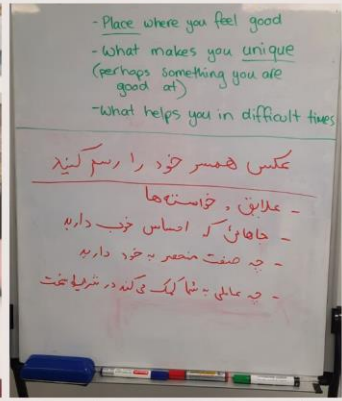 - Place where you feel good
- What makes you unique
(perhaps something you are
good at)
- What helps you in difficult times
عکس همسر خود را رسم کنید
- علایق و خواسته‌ها
- جاهائی که احساس خوب دارید
- چه صفت منحصر به خود دارید
- چه عاملی به شما کمک می‌کند در شرایط سخت